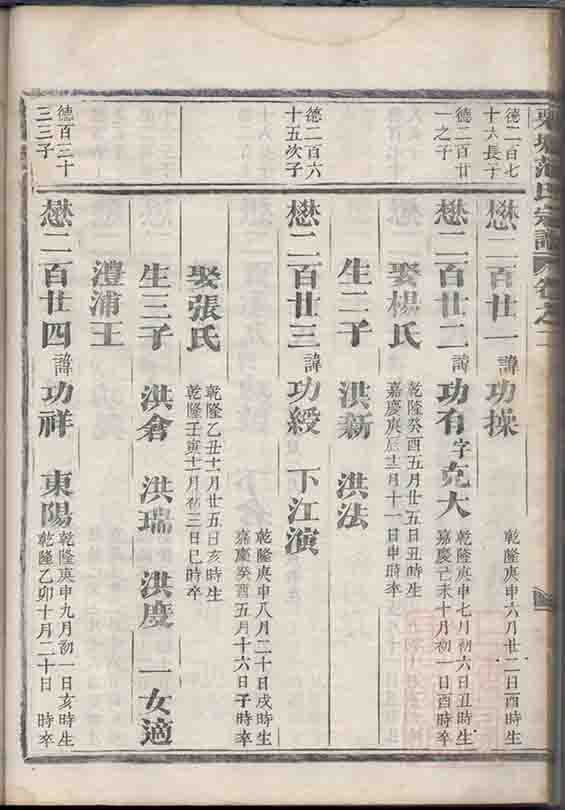 范氏宗譜 卷之二
德二百七十六長子
懋二百廿一 諱功操 乾隆庚申六月廿二日酉時生
德二百廿一之子
懋二百廿二 諱功有 字克大 乾隆庚申七月初六日丑時生 嘉慶己未十月初一日酉時卒
娶楊氏 乾隆癸酉五月廿五日丑時生 嘉慶庚辰十二月十一日申時卒
生二子 洪新 洪法
德二百六十五次子
懋二百廿三 諱功綬 下江演 乾隆庚申八月二十日戌時生 嘉慶癸酉五月十六日子時卒
娶張氏 乾隆乙丑十一月廿五日亥時生 乾隆壬寅十二月初三日巳時卒
生三子 洪倉 洪瑞 洪慶 一女適
澧浦王
德百三十三三子
懋二百廿四 諱功祥 東陽 乾隆庚申九月初一日亥時生 乾隆乙卯十月二十日 時卒